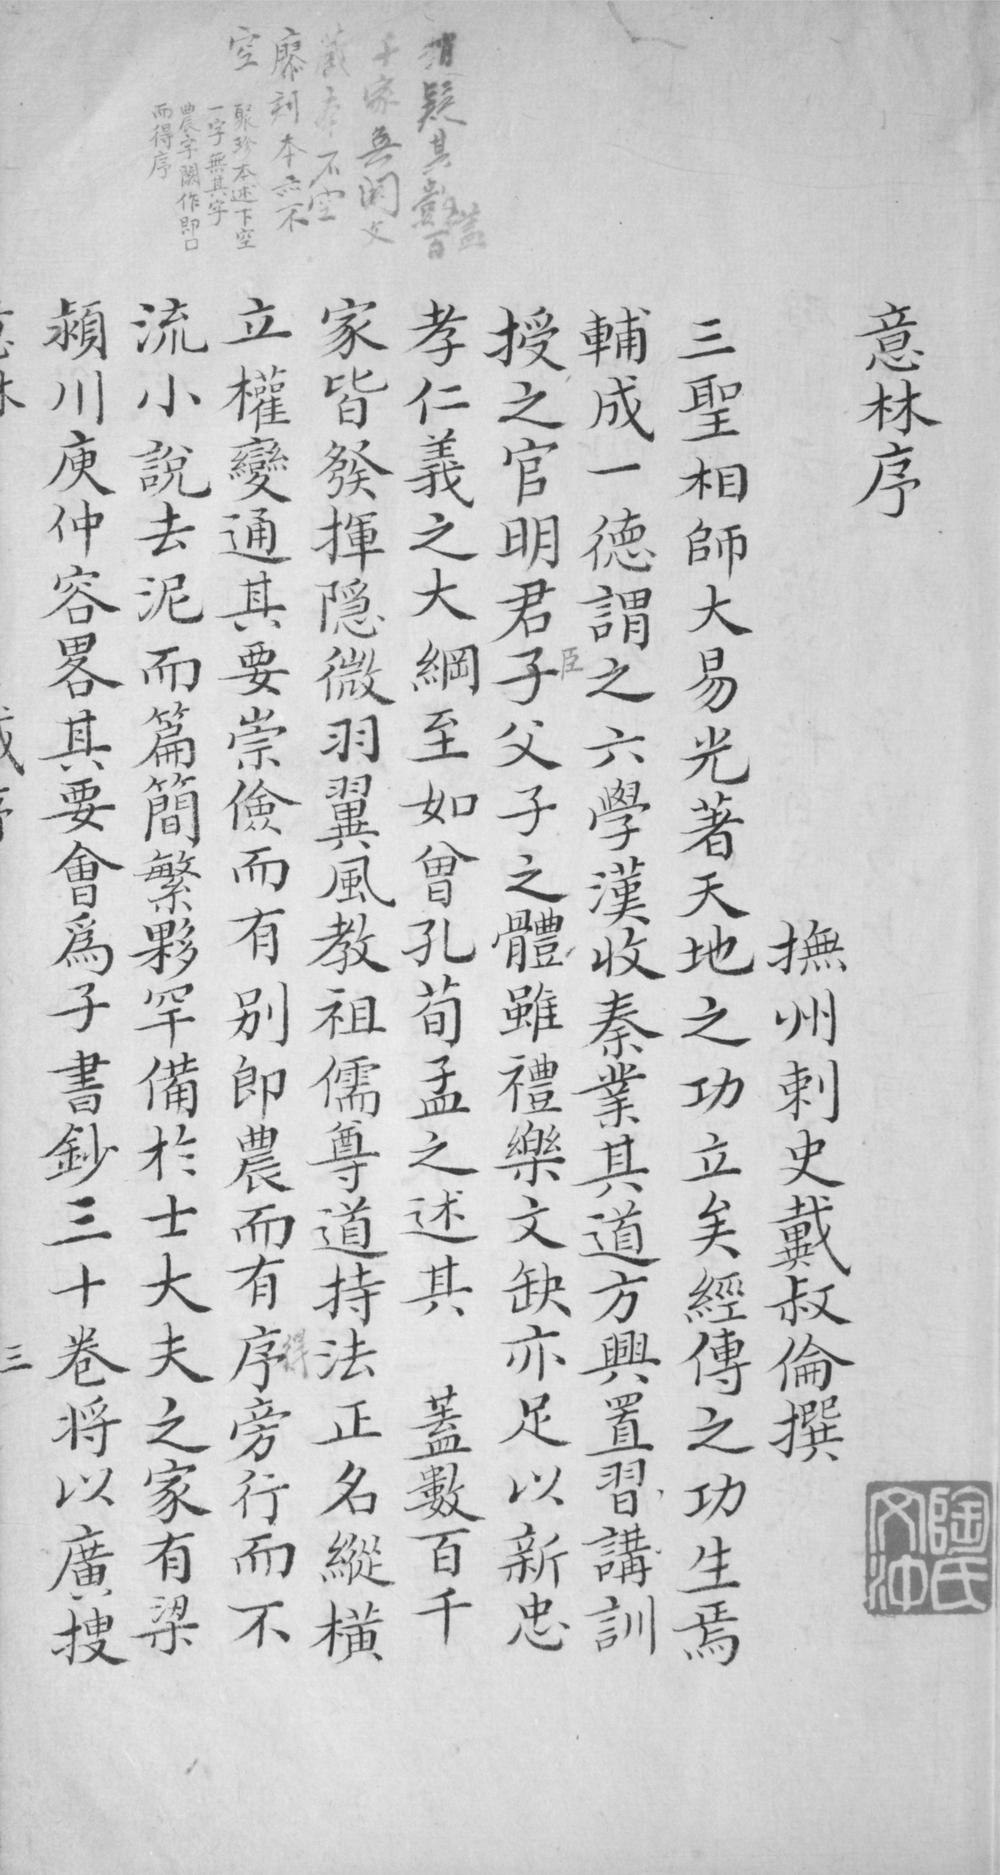 意林序
撫州刺史戴叔倫撰
三聖相師大易光著天地之功立矣經傳之功生焉
輔成一德謂之六學漢收秦業其道方興置習講訓
授之官明君子父子之體雖禮樂文缺亦足以新忠
臣
孝仁義之大綱至如曾孔荀孟之述其 蓋數百千
家皆發揮隱微羽翼風教祖儒尊道持法正名縱橫
立權變通其要崇儉而有別即農而有序旁行而不
得
流小說去泥而篇簡繁夥罕備於士大夫之家有梁
潁川庾仲容畧其要會為子書鈔三十卷将以廣搜
疑其 蓋百
千家無闕文
藏本不空
廖刻本亦不
空
聚珍本述下空
一字無其字
農字闕作即口
而得序
意林
戴序
三
陶氏文沖